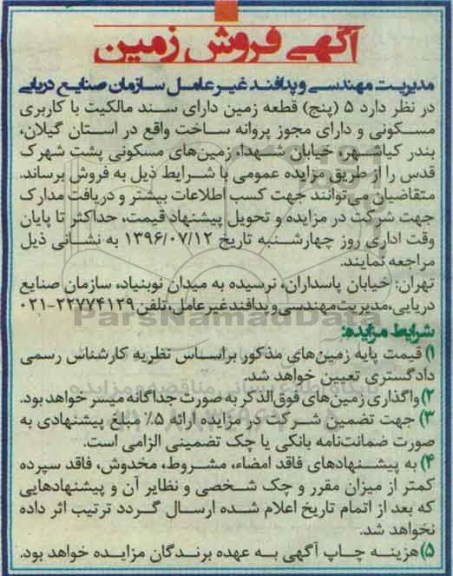 آگهی فروش زمین
مدیریت مهندسی و پدافند غیر عامل سازمان صنایع دریایی
در نظر دارد ۵ (پنج) قطعه زمین دارای سند مالکیت با کاربری
مسکونی و دارای مجوز پروانه ساخت واقع در استان گیلان،
بندر کیاشهر، خیابان شهدا، زمین‌های مسکونی پشت شهرک
قدس را از طریق مزایده عمومی با شرایط ذیل به فروش برساند.
متقاضیان می‌توانند جهت کسب اطلاعات بیشتر و دریافت مدارک
جهت شرکت در مزایده و تحویل پیشنهاد قیمت، حداکثر تا پایان
وقت اداری روز چهارشنبه تاریخ ۱۳۹۶/۰۷/۱۲ به نشانی ذیل
مراجعه نمایند.
تهران: خیابان پاسداران، نرسیده به میدان نوبنیاد، سازمان صنایع
دریایی، مدیریت مهندسی و پدافند غیر عامل، تلفن ۲۲۷۷۴۱۲۹-۰۲۱
ParsNamadData
شرایط مزایده:
۱) قیمت پایه زمین‌های مذکور براساس نظریه کارشناس رسمی
دادگستری تعیین خواهد شد.
۲) واگذاری زمین‌های فوق‌الذکر به صورت جداگانه میسر خواهد بود.
۳) جهت تضمین شرکت در مزایده ارائه ۵٪ مبلغ پیشنهادی به
صورت ضمانت‌نامه بانکی یا چک تضمینی الزامی است.
۴) به پیشنهادهای فاقد امضاء، مشروط، مخدوش، فاقد سپرده
کمتر از میزان مقرر و چک شخصی و نظایر آن و پیشنهادهایی
که بعد از اتمام تاریخ اعلام شده ارسال گردد ترتیب اثر داده
نخواهد شد.
۵) هزینه چاپ آگهی به عهده برندگان مزایده خواهد بود.